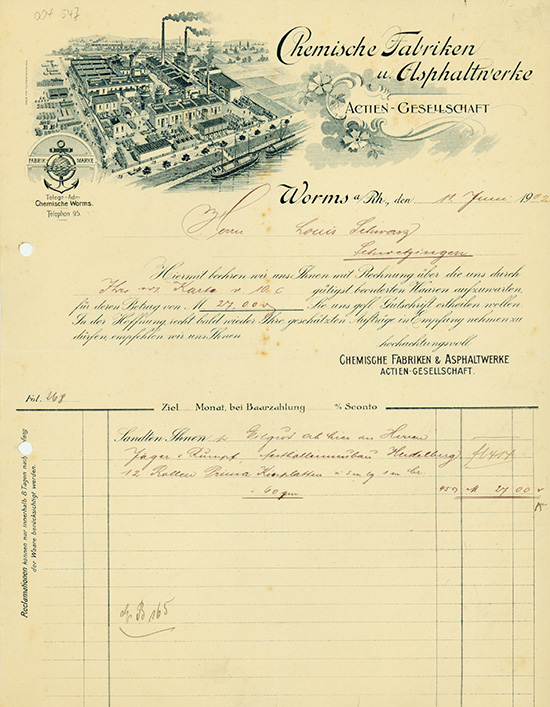 Chemische Fabriken
u. Asphaltwerke
ACTIEN-GESELLSCHAFT
FABRIK MARKE
Telegr.-Adr.
Chemische Worms.
Telephon 95.
Worms a/Rh., den 11. Juni 190
Herrn Louis Schwarz
Schwetzingen
Hiermit beehren wir uns Ihnen mit Rechnung über die uns durch
Ihre Karte v. 10. c gütigst beorderten Waaren aufzuwarten,
für deren Betrag von M 27,00 Sie uns gefl. Gutschrift ertheilen wollen.
In der Hoffnung, recht bald wieder Ihre geschätzten Aufträge in Empfang nehmen zu
dürfen, empfehlen wir uns Ihnen
hochachtungsvoll
CHEMISCHE FABRIKEN & ASPHALTWERKE
ACTIEN-GESELLSCHAFT.
Fol. 268
Ziel Monat, bei Baarzahlung % Sconto
Sandten Ihnen p. Eilgut ab hier an Herren
Jager & Rumpf, Heidelberg
12 Rollen Prima
= 60 qm 45 M 27,00
Reclamationen können nur innerhalb 8 Tagen nach Empfang
der Waare berücksichtigt werden.
B 165